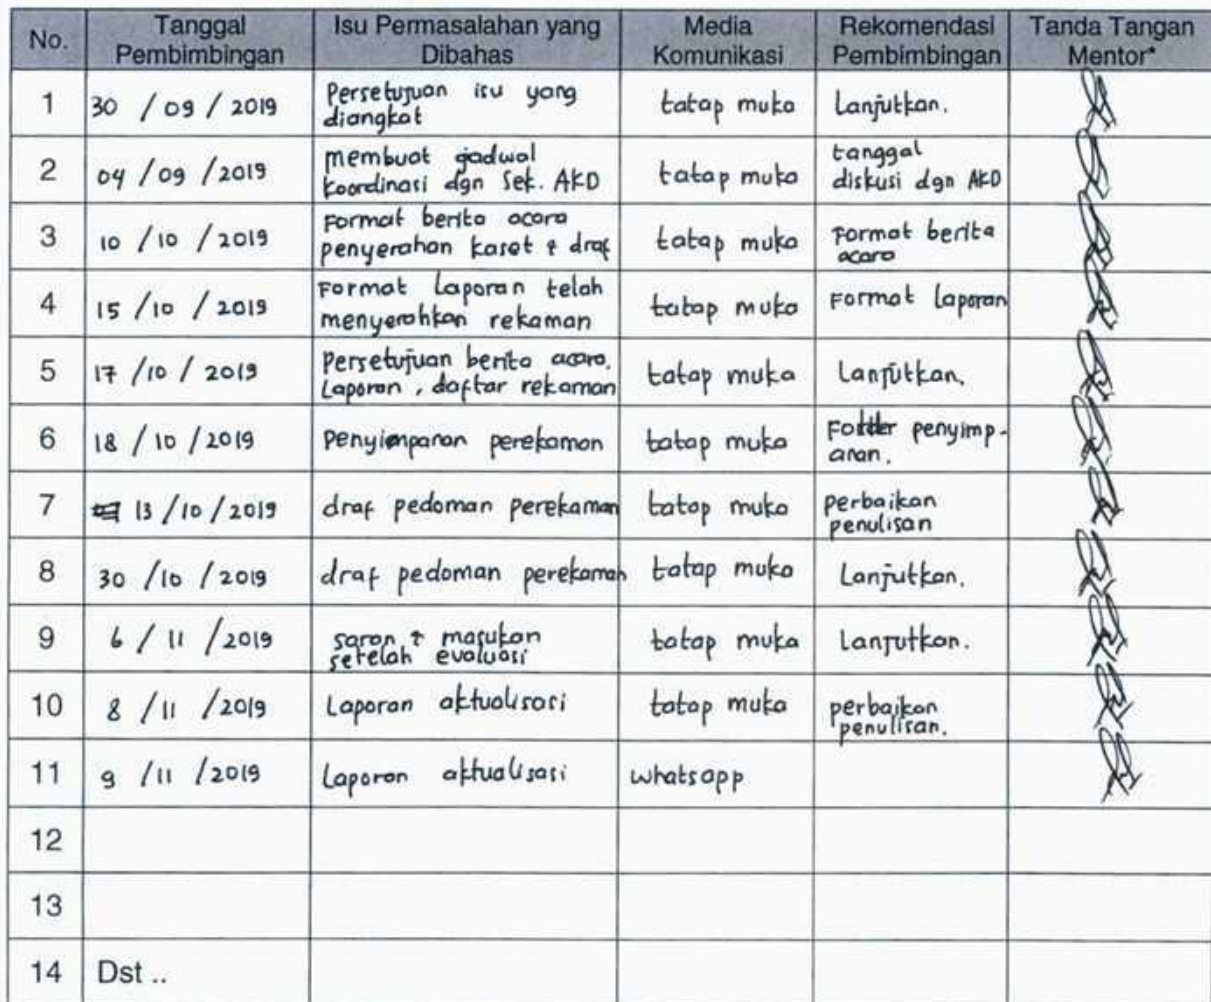 No. Tanggal Pembimbingan Isu Permasalahan yang Dibahas Media Komunikasi Rekomendasi Pembimbingan Tanda Tangan Mentor*
1 30 / 09 / 2019 Persetujuan isu yang diangkat tatap muka Lanjutkan.
2 04 / 09 / 2019 membuat jadwal koordinasi dgn Sek. AKD tatap muka tanggal diskusi dgn AKD
3 10 / 10 / 2019 Format berita acara penyerahan kaset & draf tatap muka Format berita acara
4 15 / 10 / 2019 Format Laporan telah menyerahkan rekaman tatap muka Format Laporan
5 17 / 10 / 2019 Persetujuan berita acara, Laporan, daftar rekaman tatap muka Lanjutkan.
6 18 / 10 / 2019 Penyimpanan perekaman tatap muka Folder penyimp-anan.
7 13 / 10 / 2019 draf pedoman perekaman tatap muka perbaikan penulisan
8 30 / 10 / 2019 draf pedoman perekaman tatap muka Lanjutkan.
9 6 / 11 / 2019 saran & masukan setelah evaluasi tatap muka Lanjutkan.
10 8 / 11 / 2019 Laporan aktualisasi tatap muka perbaikan penulisan.
11 9 / 11 / 2019 Laporan aktualisasi whatsapp
12
13
14 Dst ..